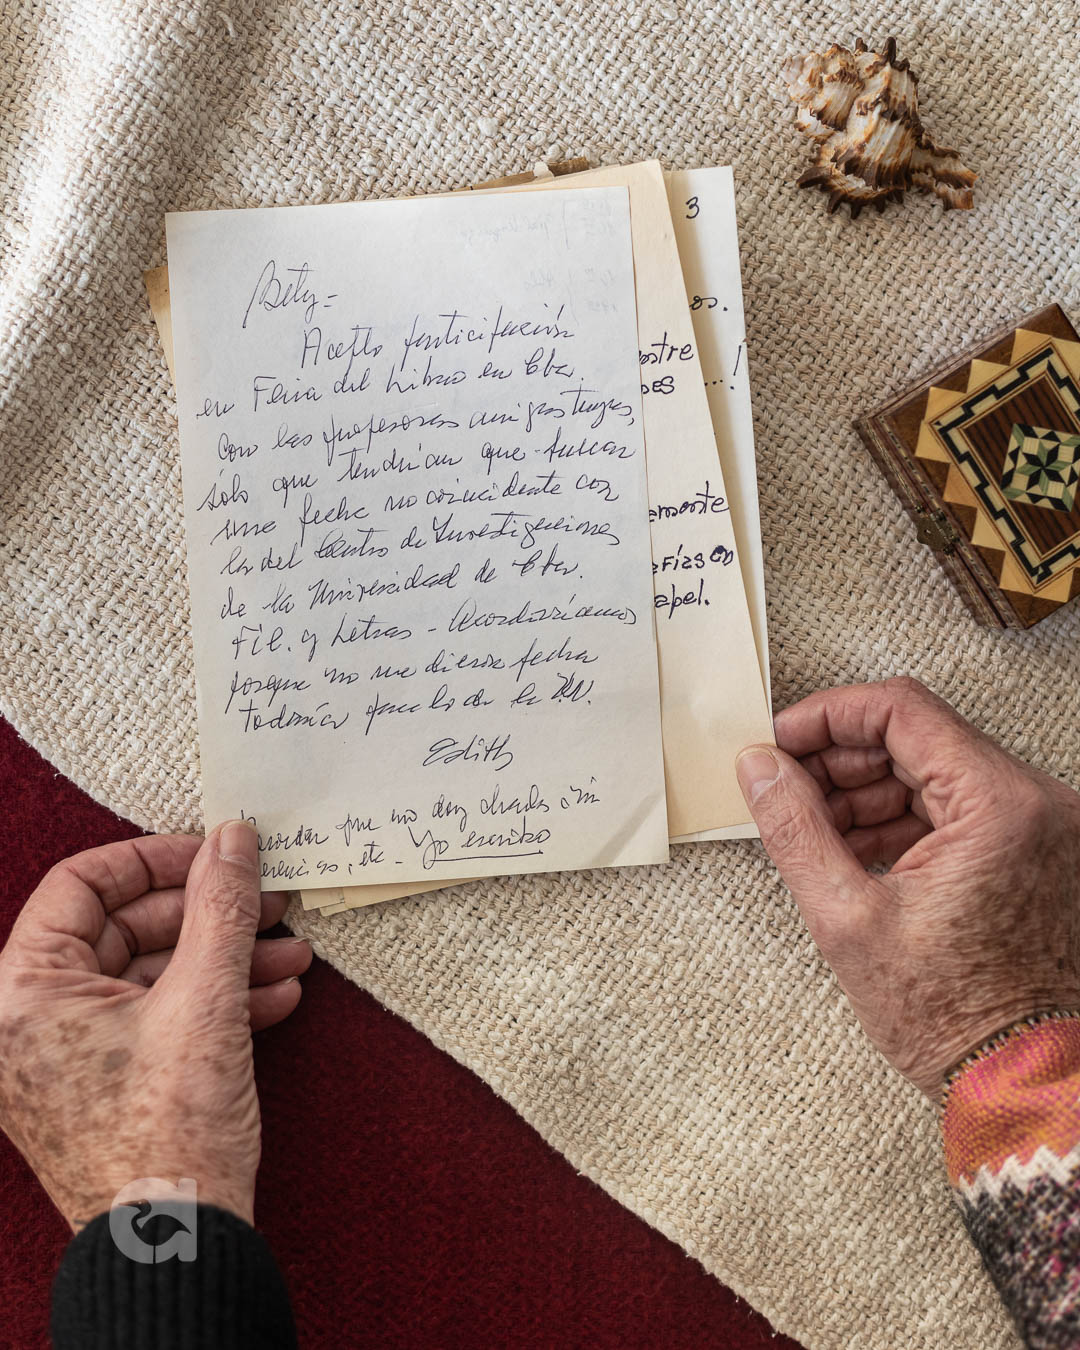 Bety =
Acepto participación
en Feria del Libro en Cba.
con las profesoras amigas tuyas,
sólo que tendrían que buscar
una fecha no coincidente con
la del Centro de Investigaciones
de la Universidad de Cba.
Fil. y Letras - Acordaríamos
porque no me dieron fecha
todavía para lo de la UN.
Edith
que no doy charlas sin
etc - Yo escribo
3
os.
ostre
ses ...!
emente
afías en
apel.